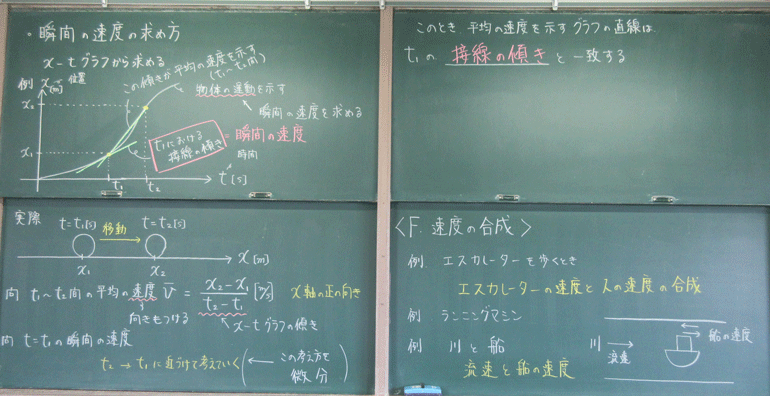 。瞬間の速度の求め方
x-tグラフから求める
この傾きが平均の速度を示す
(t₁~t₂間)
例 x[m] 位置
物体の運動を示す
x₂
瞬間の速度を求める
t₁における
接線の傾き
= 瞬間の速度
x₁
時間
t₁ t₂ t[s]
このとき、平均の速度を示すグラフの直線は
t₁の 接線の傾き と一致する
実際
t=t₁[s] 移動 t=t₂[s]
x₁ x₂ x[m]
問 t₁~t₂間の平均の速度 v̄ = (x₂-x₁)/(t₂-t₁) [m/s] x軸の正の向き
向きもつける
x-tグラフの傾き
問 t=t₁の瞬間の速度
t₂→t₁に近づけて考えていく (← この考え方を 微分)
<F. 速度の合成>
例. エスカレーターを歩くとき
エスカレーターの速度と人の速度の合成
例 ランニングマシン
例 川と船
流速と船の速度
川
流速
船の速度